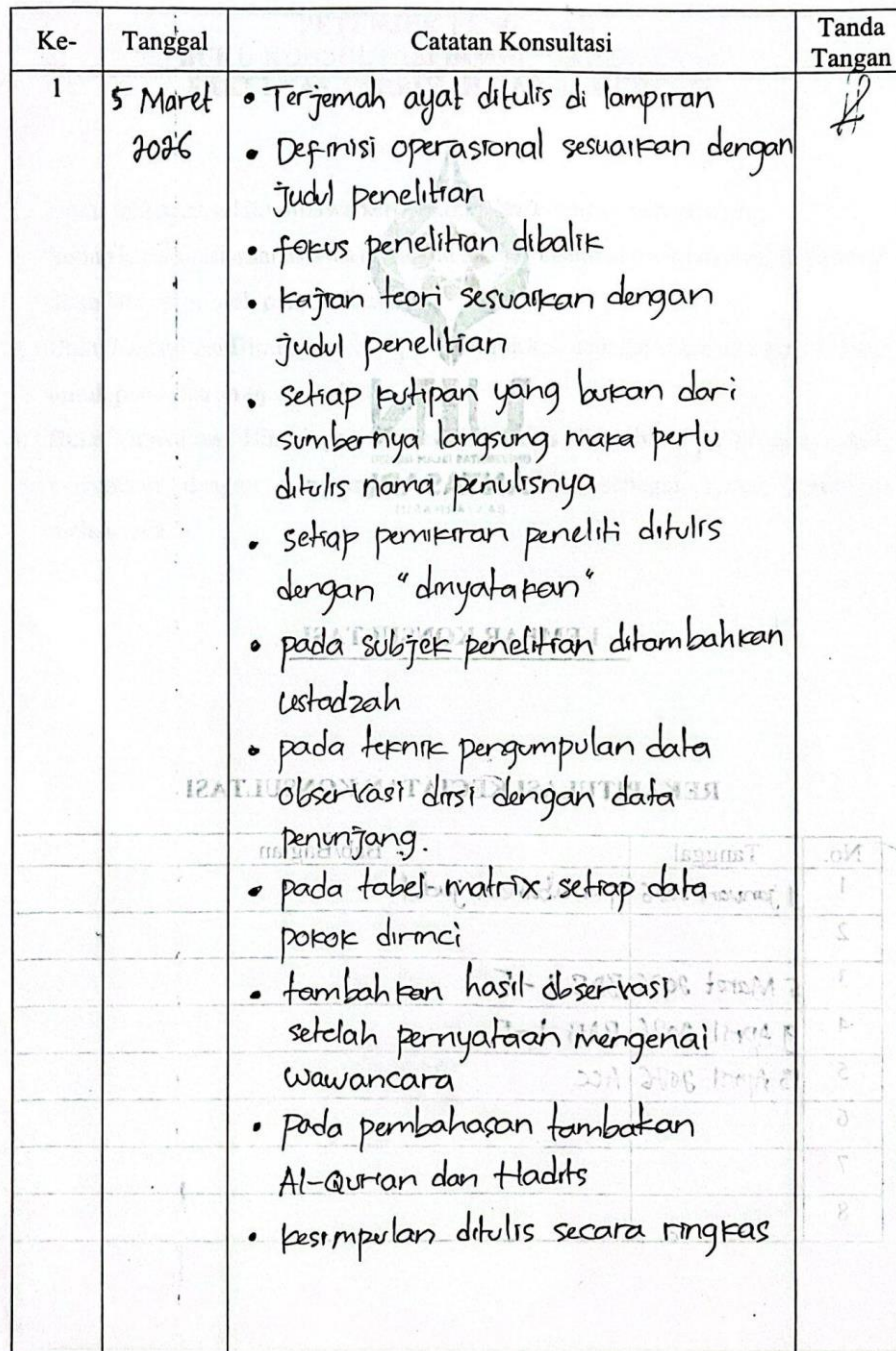 Ke- Tanggal Catatan Konsultasi Tanda Tangan
1 5 Maret 2026
• Terjemah ayat ditulis di lampiran
• Definisi operasional sesuaikan dengan
judul penelitian
• fokus penelitian dibalik
• kajian teori sesuaikan dengan
judul penelitian
• setiap kutipan yang bukan dari
sumbernya langsung maka perlu
ditulis nama penulisnya
• setiap pemikiran peneliti ditulis
dengan "dinyatakan"
• pada subjek penelitian ditambahkan
ustadzah
• pada teknik pengumpulan data
observasi diisi dengan data
penunjang.
• pada tabel matrix setiap data
pokok dirinci
• tambahkan hasil observasi
setelah pernyataan mengenai
wawancara
• pada pembahasan tambakan
Al-Qur'an dan Hadits
• kesimpulan ditulis secara ringkas
LEMBAR KONSULTASI
REKAPITULASI KEGIATAN KONSULTASI
No. Tanggal Bab/Bagian
1
2
3 5 Maret 2026
4
5 13 April 2026 ACC
6
7
8